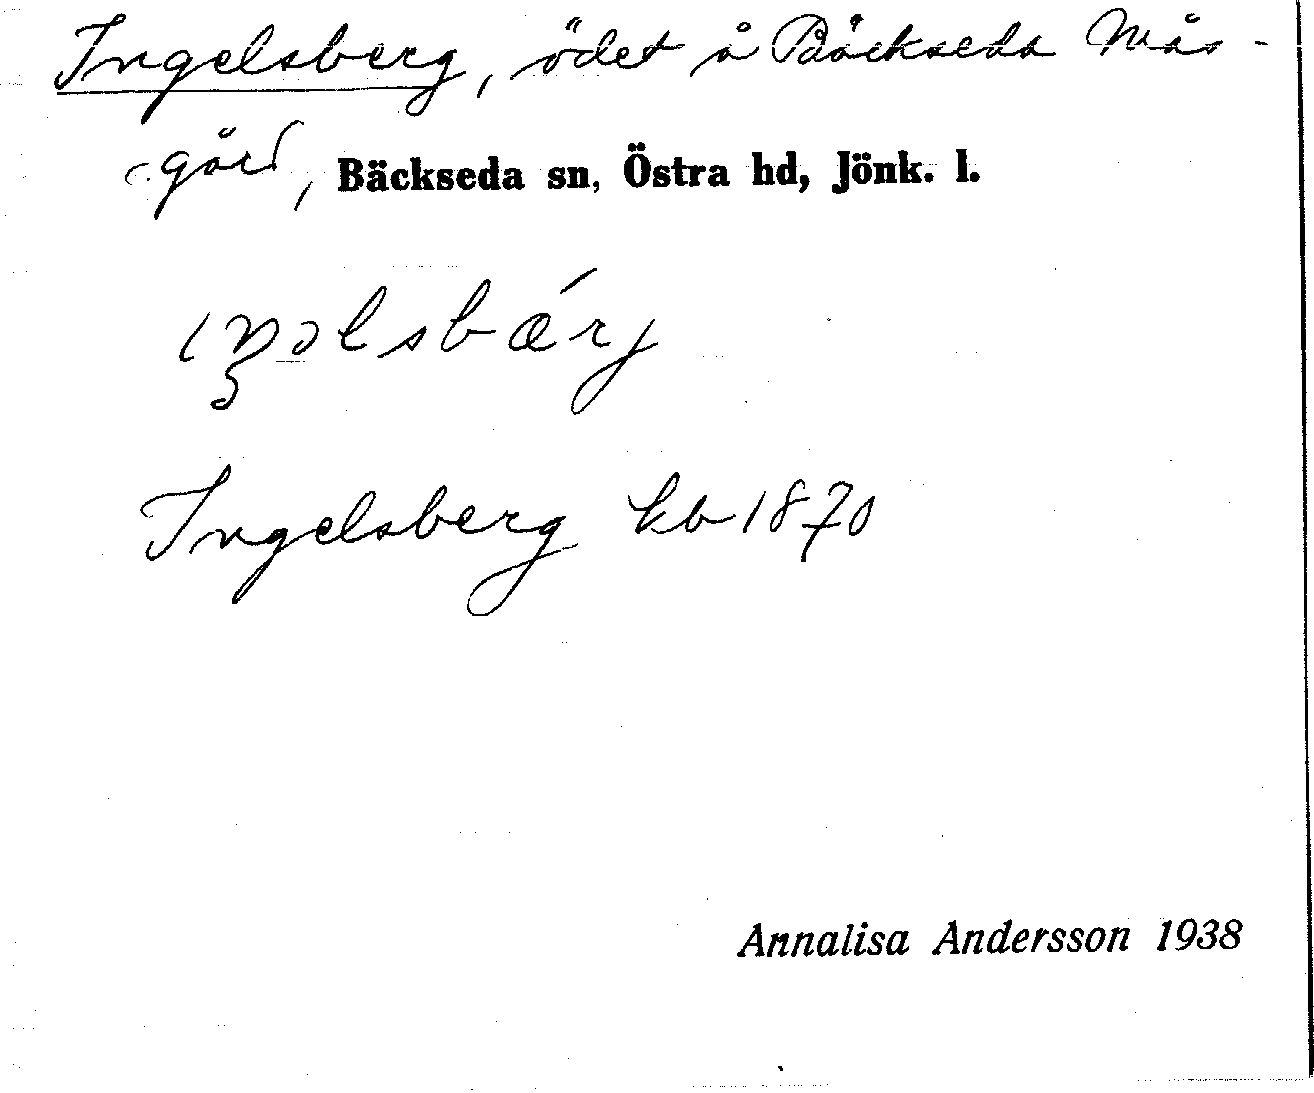 Ingelsberg, ödet å Bäckseda Mås-
gård, Bäckseda sn, Östra hd, Jönk. l.
ıŋəlsbǽrj
Ingelsberg kb 1870
Annalisa Andersson 1938